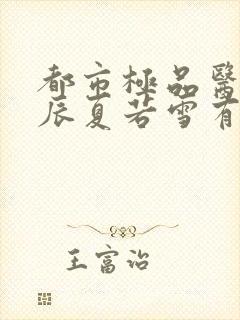 都市極品醫
辰夏若雪有
王富治